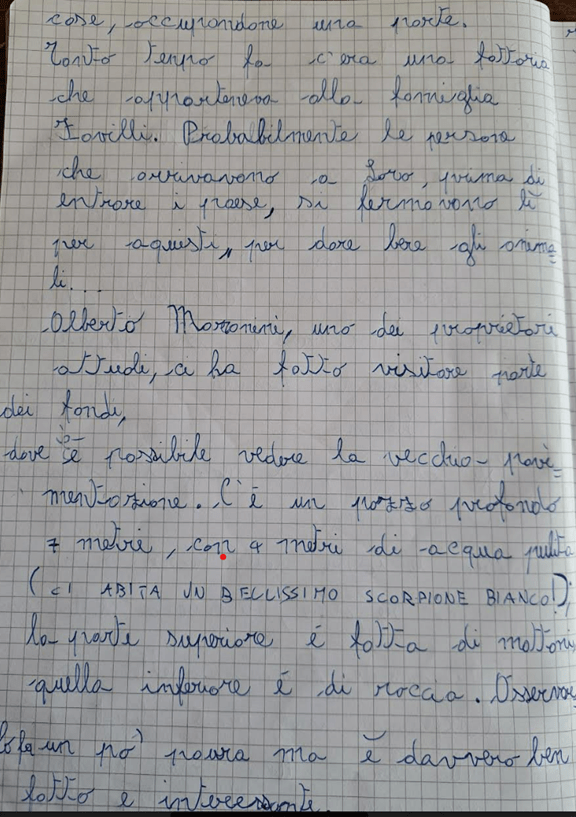 cose, occupandone una parte.
Tanto tempo fa c'era una fattoria
che apparteneva alla famiglia
Iovilli. Probabilmente le persone
che arrivavano a Loro, prima di
entrare i paese, si fermavano lì
per aquisti, per dare bere agli anima=
li...
Alberto Marronini, uno dei proprietari
attuali, ci ha fatto visitare parte
dei fondi,
dove è possibile vedere la vecchia pavi=
mentazione. C'è un pozzo profondo
7 metri, con 4 metri di acqua pulita
(CI ABITA UN BELLISSIMO SCORPIONE BIANCO!);
la parte superiore é fatta di mattoni,
quella inferiore é di roccia. Osservar
lo fa un pò paura ma è davvero ben
fatto e interessante.